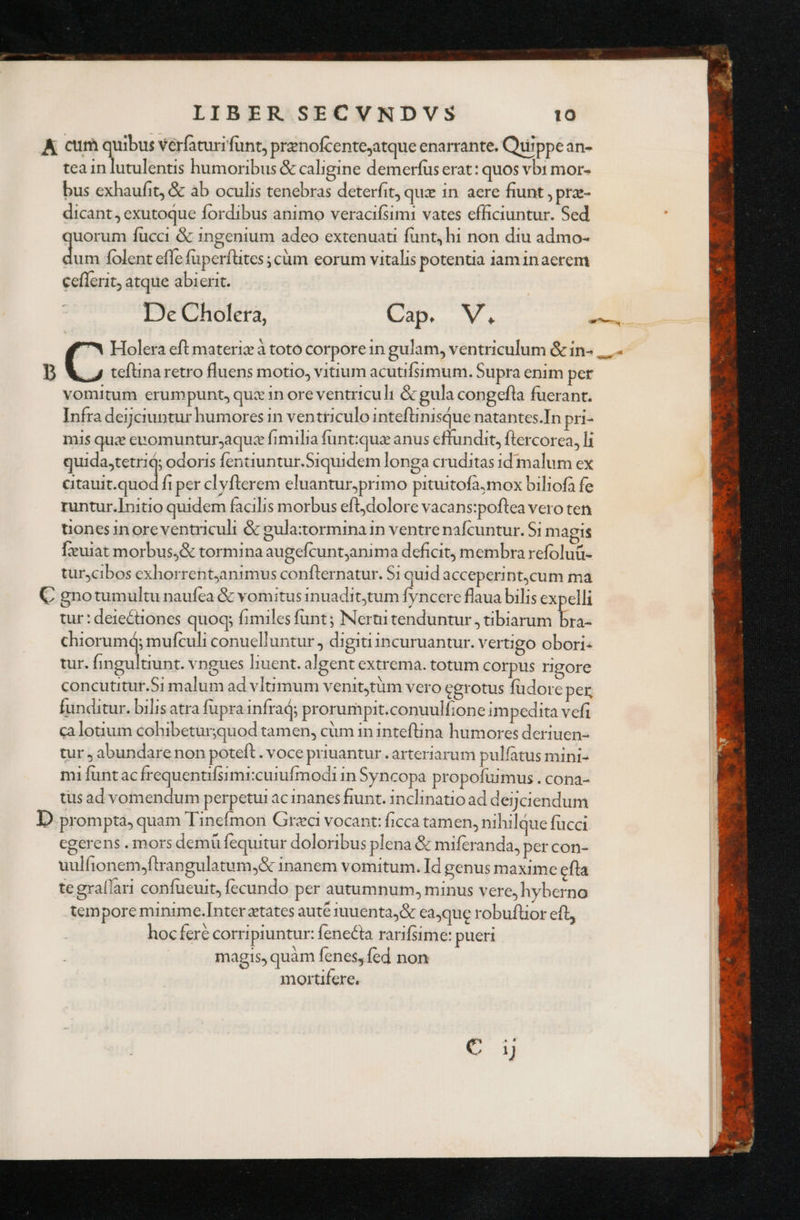 LIBER SECVNDVS 10
A cum quibus verſaturi ſunt, prænoſcente, atque enarrante. Quippe an-
tea in lutulentis humoribus & caligine demerſus erat: quos vbi mor-
bus exhauſit, & ab oculis tenebras deterſit, quæ in aere fiunt, præ-
dicant, exutoque ſordibus animo veraciſsimi vates efficiuntur. Sed
quorum ſucci & ingenium adeo extenuati ſunt, hi non diu admo-
dum ſolent eſſe ſuperſtites; cùm eorum vitalis potentia iam in aerem
ceſſerit, atque abierit.
De Cholera, Cap. V.
CHolera eſt materiæ à toto corpore in gulam, ventriculum & in-
B teſtina retro fluens motio, vitium acutiſsimum. Supra enim per
vomitum erumpunt, quæ in ore ventriculi & gula congeſta fuerant.
Infra deijciuntur humores in ventriculo inteſtinisque natantes. In pri-
mis quæ euomuntur, aquæ ſimilia ſunt: quæ anus effundit, ſtercorea, li
quida, tetriq; odoris ſentiuntur. Siquidem longa cruditas id malum ex
citauit. quod ſi per clyſterem eluantur, primo pituitoſa, mox bilioſa fe
runtur. Initio quidem facilis morbus eſt, dolore vacans: poſtea vero ten
tiones in ore ventriculi & gula: tormina in ventre naſcuntur. Si magis
ſæuiat morbus, & tormina augeſcunt, anima deficit, membra reſoluũ-
tur, cibos exhorrent, animus conſternatur. Si quid acceperint, cum ma
C gno tumultu nauſea & vomitus inuadit, tum ſyncere flaua bilis expelli
tur: deiectiones quoq; ſimiles ſunt; Nerui tenduntur, tibiarum bra-
chiorumq; muſculi conuelluntur, digiti incuruantur. vertigo obori-
tur. ſingultiunt. vngues liuent. algent extrema. totum corpus rigore
concutitur. Si malum ad vltimum venit, tùm vero egrotus ſudore per
funditur. bilis atra ſupra infraq; prorumpit. conuulſione impedita veſi
ca lotium cohibetur; quod tamen, cùm in inteſtina humores deriuen-
tur, abundare non poteſt. voce priuantur. arteriarum pulſatus mini-
mi ſunt ac frequentiſsimi: cuiuſmodi in Syncopa propoſuimus. cona-
tus ad vomendum perpetui ac inanes fiunt. inclinatio ad deijciendum
D prompta, quam Tineſmon Græci vocant: ſicca tamen, nihilque ſucci
egerens. mors demũ ſequitur doloribus plena & miſeranda, per con-
uulſionem, ſtrangulatum, & inanem vomitum. Id genus maxime eſta
te graſſari conſueuit, ſecundo per autumnum, minus vere, hyberno
tempore minime. Inter ætates autẽ iuuenta, & ea, quę robuſtior eſt,
hoc ferè corripiuntur: ſenecta rariſsime: pueri
magis, quàm ſenes, ſed non
mortifere.
C ij